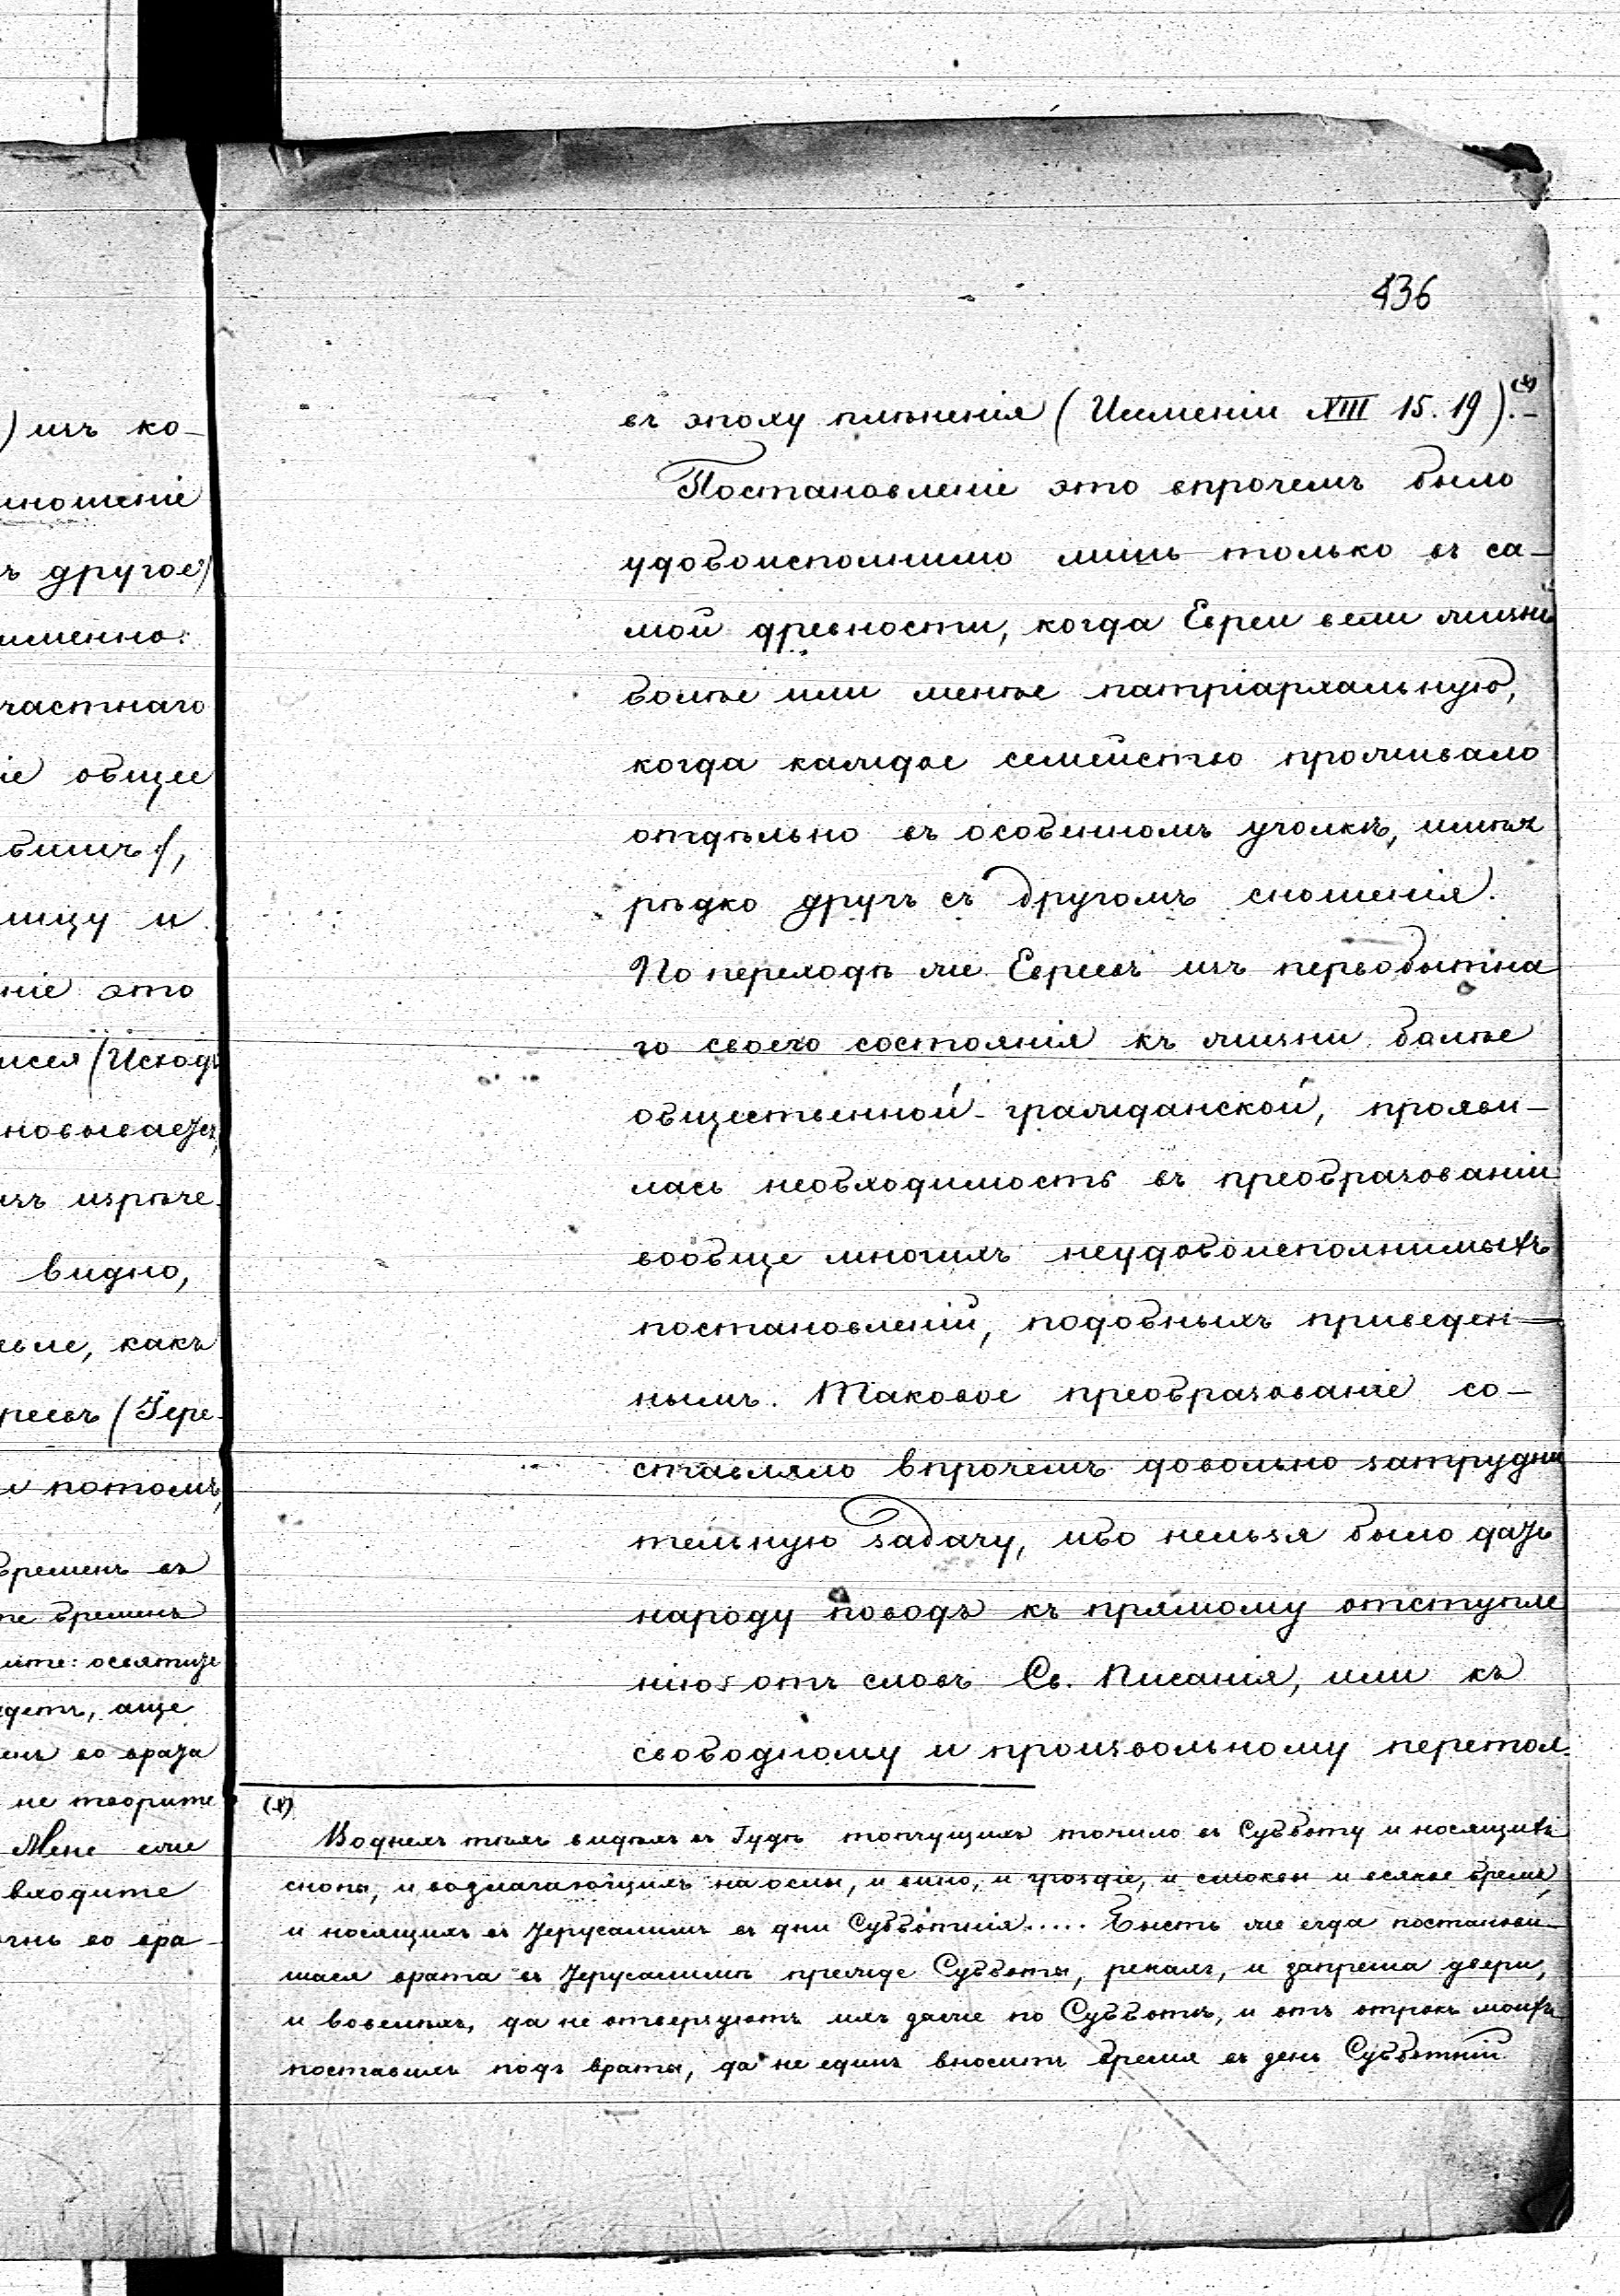 436
въ эпоху плѣненія (Неемеміи XIII 15. 19).(*)–
Постановленіе это впрочемъ было
удобоисполнимо лишь только въ са-
мой древности, когда Евреи вели жизнь
болѣе или менѣе патріархальную,
когда каждое семейство проживало
отдѣльно въ особенномъ уголкѣ, имѣя
рѣдко другъ съ другомъ сношенія.
По переходѣ же Евреевъ изъ первобытна
го своего состоянія къ жизни болѣе
общественной-гражданской, прояви-
лась необходимость въ преобразованіи
вообще многихъ неудобоисполнимыхъ
постановленій, подобныхъ приведен-
нымъ. Таковое преобразованіе со-
ставляло впрочемъ довольно затрудни
тельную задачу, ибо нельзя было дать
народу поводъ къ прямому отступле
нію отъ словъ Св. Писанія, или къ
свободному и произвольному перетол-
(*)
Во днехъ тѣхъ видѣхъ въ Іудѣ топчущихъ точило въ Субботу и носящихъ
снопы, и возлагающихъ на ослы, и вино, и гроздіе, и смокви и всякое бремя,
и носящихъ въ Іерусалимъ въ дни Субботнія..... Бысть же егда постанови-
шася врата въ Іерусалимѣ прежде Субботы, рекахъ, и запреша двери,
и повелѣхъ, да не отверзуютъ ихъ даже по Субботѣ, и отъ отрокъ моихъ
поставихъ подъ враты, да не единъ вноситъ бремя въ день Субботній
) изъ ко-
ношеніе
ъ другое)
именно:
частнаго
іе общее
бимъ),
лицу и
ніе это
исея (Исходъ
новывает,
изъ изрѣче-
видно,
какъ
реевъ (Іере-
и потомъ,
бременъ въ
бременъ
ите: освятите
детъ, аще
во врата
не творите
Мене еже
входите
во вра-